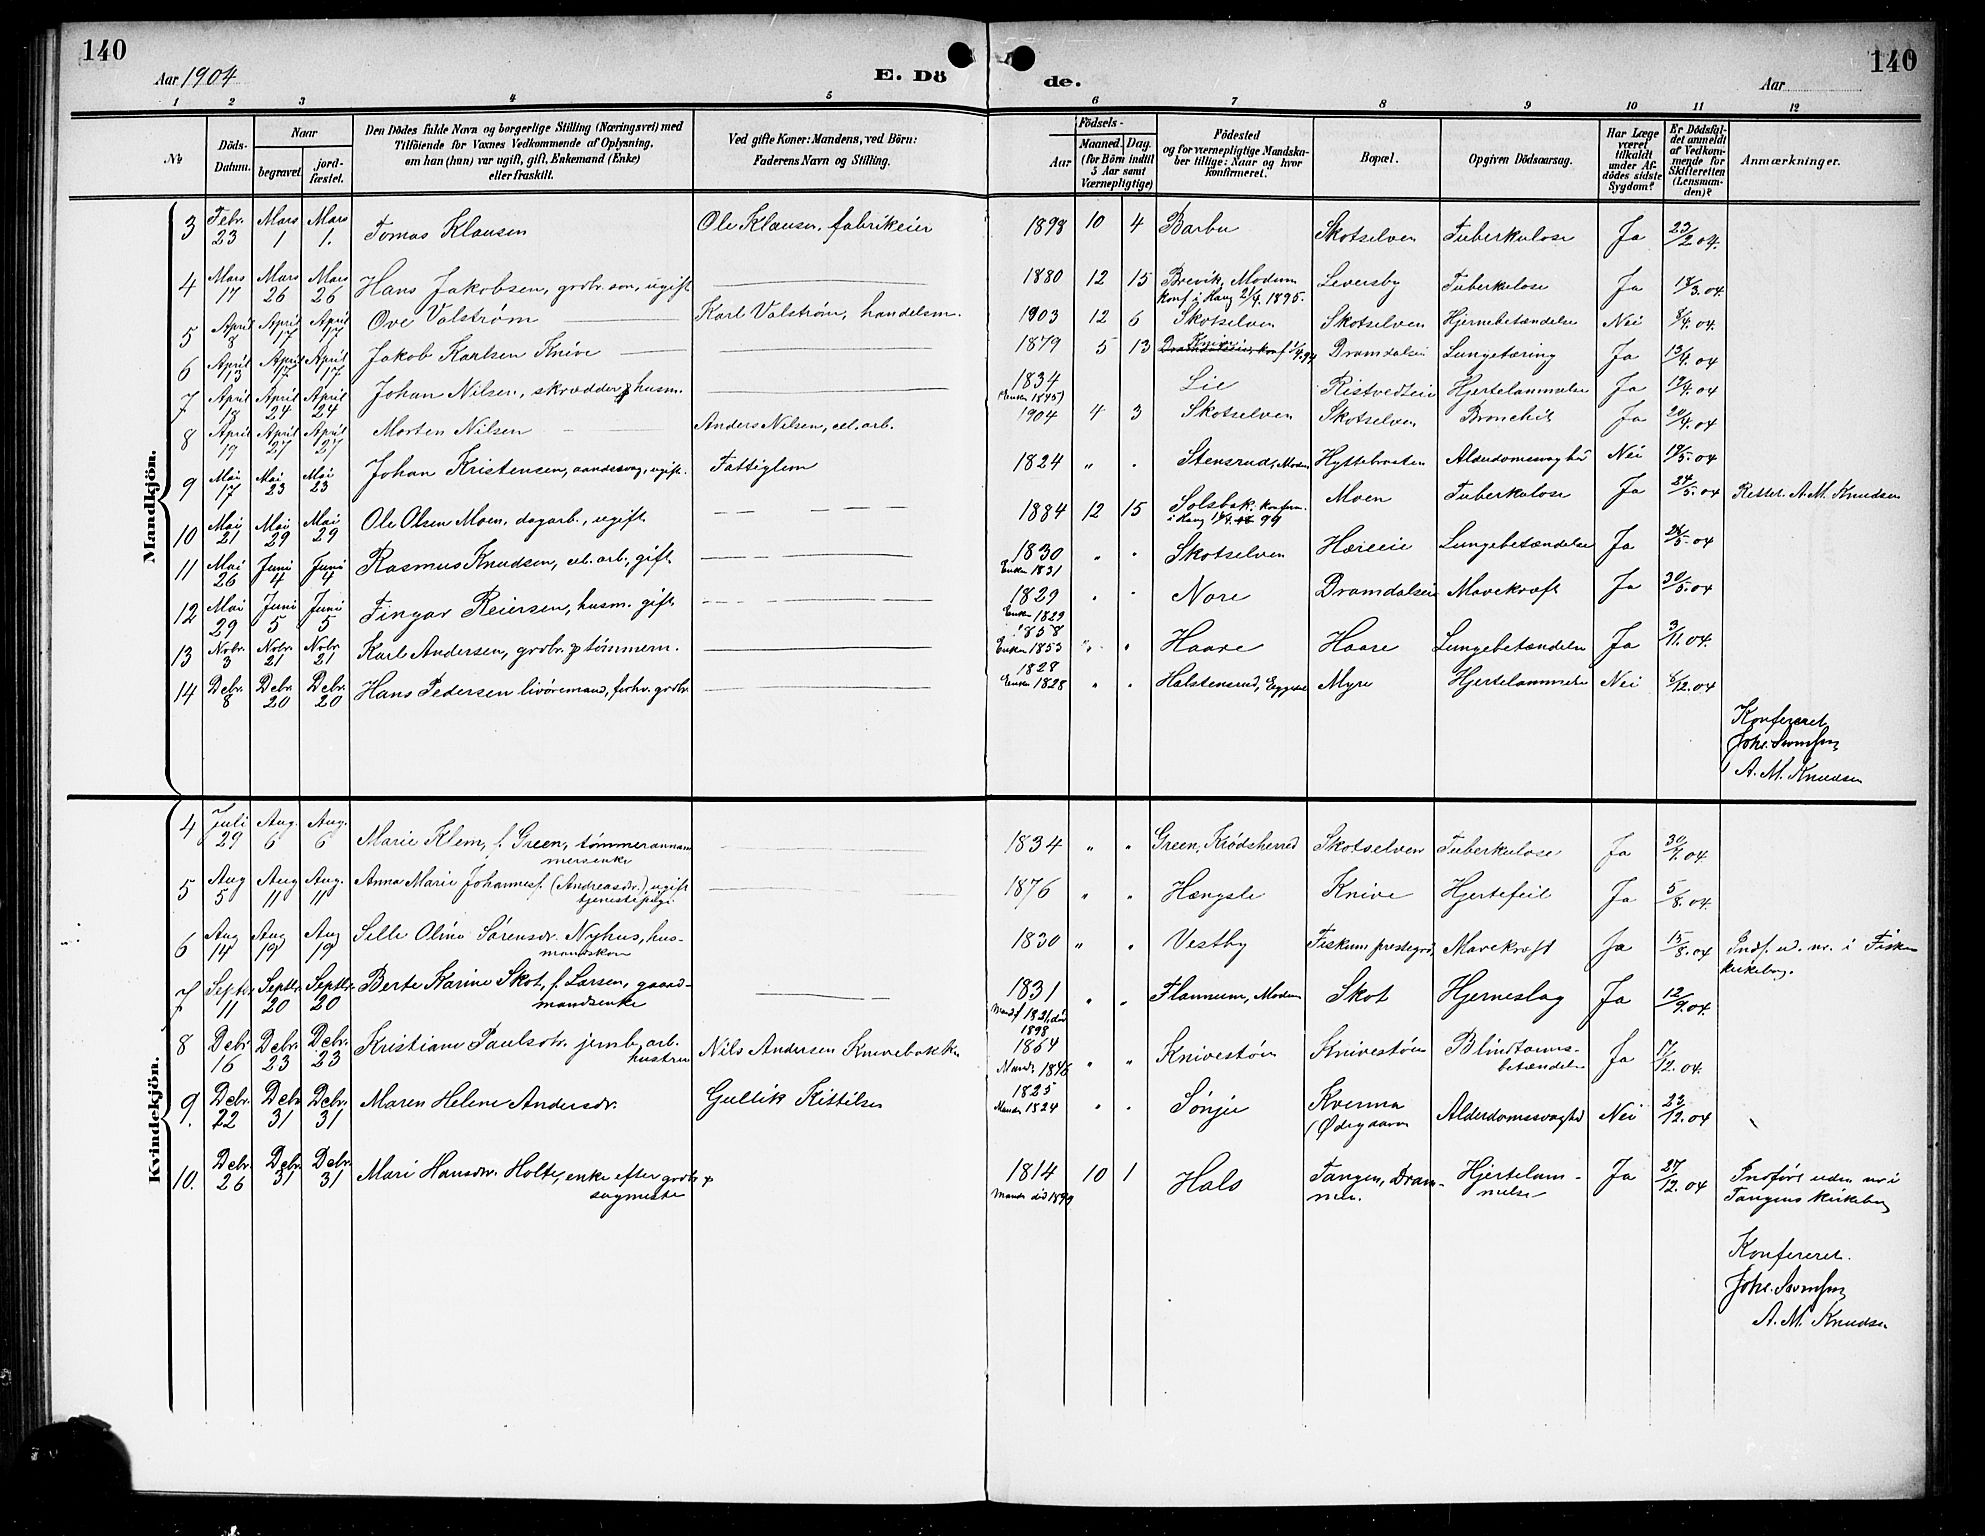 140
140
Aar 1904
E. Dö de.
Aar
1 2 3 4 5 6 7 8 9 10 11 12
No
Döds-Datum.
Naar
begravet.
jord-fæstet.
Den Dödes fulde Navn og borgerlige Stilling (Næringsvei) med
Tilföiende for Voxnes Vedkommende af Oplysning,
om han (hun) var ugift, gift, Enkemand (Enke)
eller fraskilt.
Ved gifte Koner: Mandens, ved Börn:
Faderens Navn og Stilling.
Födsels-
Aar
Maaned.
Dag.
(for Börn indtil
5 Aar samt
Værnepligtige)
Födested
og for værnepligtige Mandska-
ber tillige: Naar og hvor
konfirmeret.
Bopæl.
Opgiven Dödsaarsag.
Har Læge
været
tilkaldt
under Af-
dödes sidste
Sygdom?
Er Dödsfal-
det anmeldt
af Vedkom-
mende for
Skifteretten
(Lensman-
den)?
Anmærkninger.
Mandkjön.
3 Febr. 23 Mars 1 Mars 1. Tomas Klausen Ole Klausen, fabrikeier 1898 10 4 Barbu Skotselven Tuberkulose Ja 23/2 04.
4 Mars 17 Mars 26 Mars 26 Hans Jakobsen, grdbr. søn, ugift 1880 12 15 Brevik, Modum Leversby Tuberkulose Ja 18/3 04.
konf. i Haug 21/4. 1895.
5 April 8 April 17 April 17 Ove Valstrøm Karl Valstrøm, handelsm. 1903 12 6 Skotselven Skotselven Hjernebetændelse Nei 8/4. 04.
6 April 13 April 17 April 17 Jakob Karlsen Knive 1879 5 13 Dramdalseie Lungetæring Ja 13/4. 04
7 April 18 April 24 April 24 Johan Nilsen, skrædder & husm. 1834 Lie Ristvedteie Hjertelammelse Ja 19/4. 04
(Enken 1845)
8 April 19 April 27 April 27 Morten Nilsen Anders Nilsen, cel. arb. 1904 4 3 Skotselven Skotselven Bronchit Ja 20/4. 04
9 Mai 17 Mai 23 Mai 23 Johan Kristensen, aandssvag, ugift. Fattiglem 1824 " . Stensrud, Modum Hyttebraaten Alderdomssvaghed Nei 19/5. 04
10 Mai 21 Mai 29 Mai 29 Ole Olsen Moen, dagarb., ugift 1884 12 15 Solsbak. konfirm. Moen Tuberkulose Ja 24/5. 04 Rettet. A. M. Knudsen
11 Mai 26 Juni 4 Juni 4 Rasmus Knudsen, cel. arb., gift 1830 " " Skotselven Hæreie Lungebetændelse Ja 28/5. 04
Enken 1831
12 Mai 29 Juni 5 Juni 5 Fingar Reiersen, husm. gift 1829 " " Nore Dramdalseie Mavekræft Ja 30/5. 04
Enken 1829
13 Nobr. 3 Nobr. 21 Nobr. 21 Karl Andersen, grdbr. & tømmerm. 1858 " " Haare Haare Lungebetændelse Ja 3/11. 04.
Enken 1853
14 Debr. 8 Debr. 20 Debr. 20 Hans Pedersen livøremand, forhv. grdbr. 1828 " " Halstensrud, Eggedal Myre Hjertelammelse Nei 8/12. 04
Enken 1828
Konfereret
A. M. Knudsen
Kvindekjön.
4 Juli 29 Aug. 6 Aug. 6 Marie Klem, f. Green, tømmermann 1834 " " Green, Krødsherred Skotselven Tuberkulose Ja 30/7. 04
mersenke
5 Aug 5 Aug 11 Aug. 11 Anna Marie Johannesf. (Andreasdr.), ugift 1876 " " Hængsle Knive Hjertefeil Ja 5/8. 04.
tjenestepige.
6 Aug 14 Aug 19 Aug 19 Sille Oline Sørensdr. Nyhus, hus- 1830 " " Vestby Fiskum prestegrd. Mavekræft Ja 15/8. 04 Indf. ud. nr. i Fiskum
mandskone kirkebog.
7 Septbr. 11 Septbr. 20 Septbr. 20 Berte Karine Skot, f. Larsen, gaard- 1831 " " Flannum, Modum Skot Hjerneslag Ja 12/9. 04.
mandsenke Mand f. 1821, død 1898
8 Debr. 16 Debr. 23 Debr. 23 Kristiane Paulsdtr. jernb. arb. Nils Andersen Knivebakken 1864 " " Knivestøen Knivestøen Blindtarms- Ja 17/12. 04.
hustru Mand. 1846 betændelse
9. Debr. 22 Debr. 31 Debr. 31 Maren Helene Andersdr. Gullik Kittilsen 1825 " " Sønju Kverma Alderdomssvaghed Nei 23/12. 04
Manden 1824 (Ødegaarn
10. Debr. 26 Debr. 31 Debr. 31 Mari Hansdr. Holte, enke efter grdbr. & 1814 10 1 Hals Tangen, Dram- Hjertelam- Ja 27/12. 04 Indført uden nr i
sagmester Manden død 1890 men. melse Tangens kirkebog
Konfereret.
A. M. Knudsen